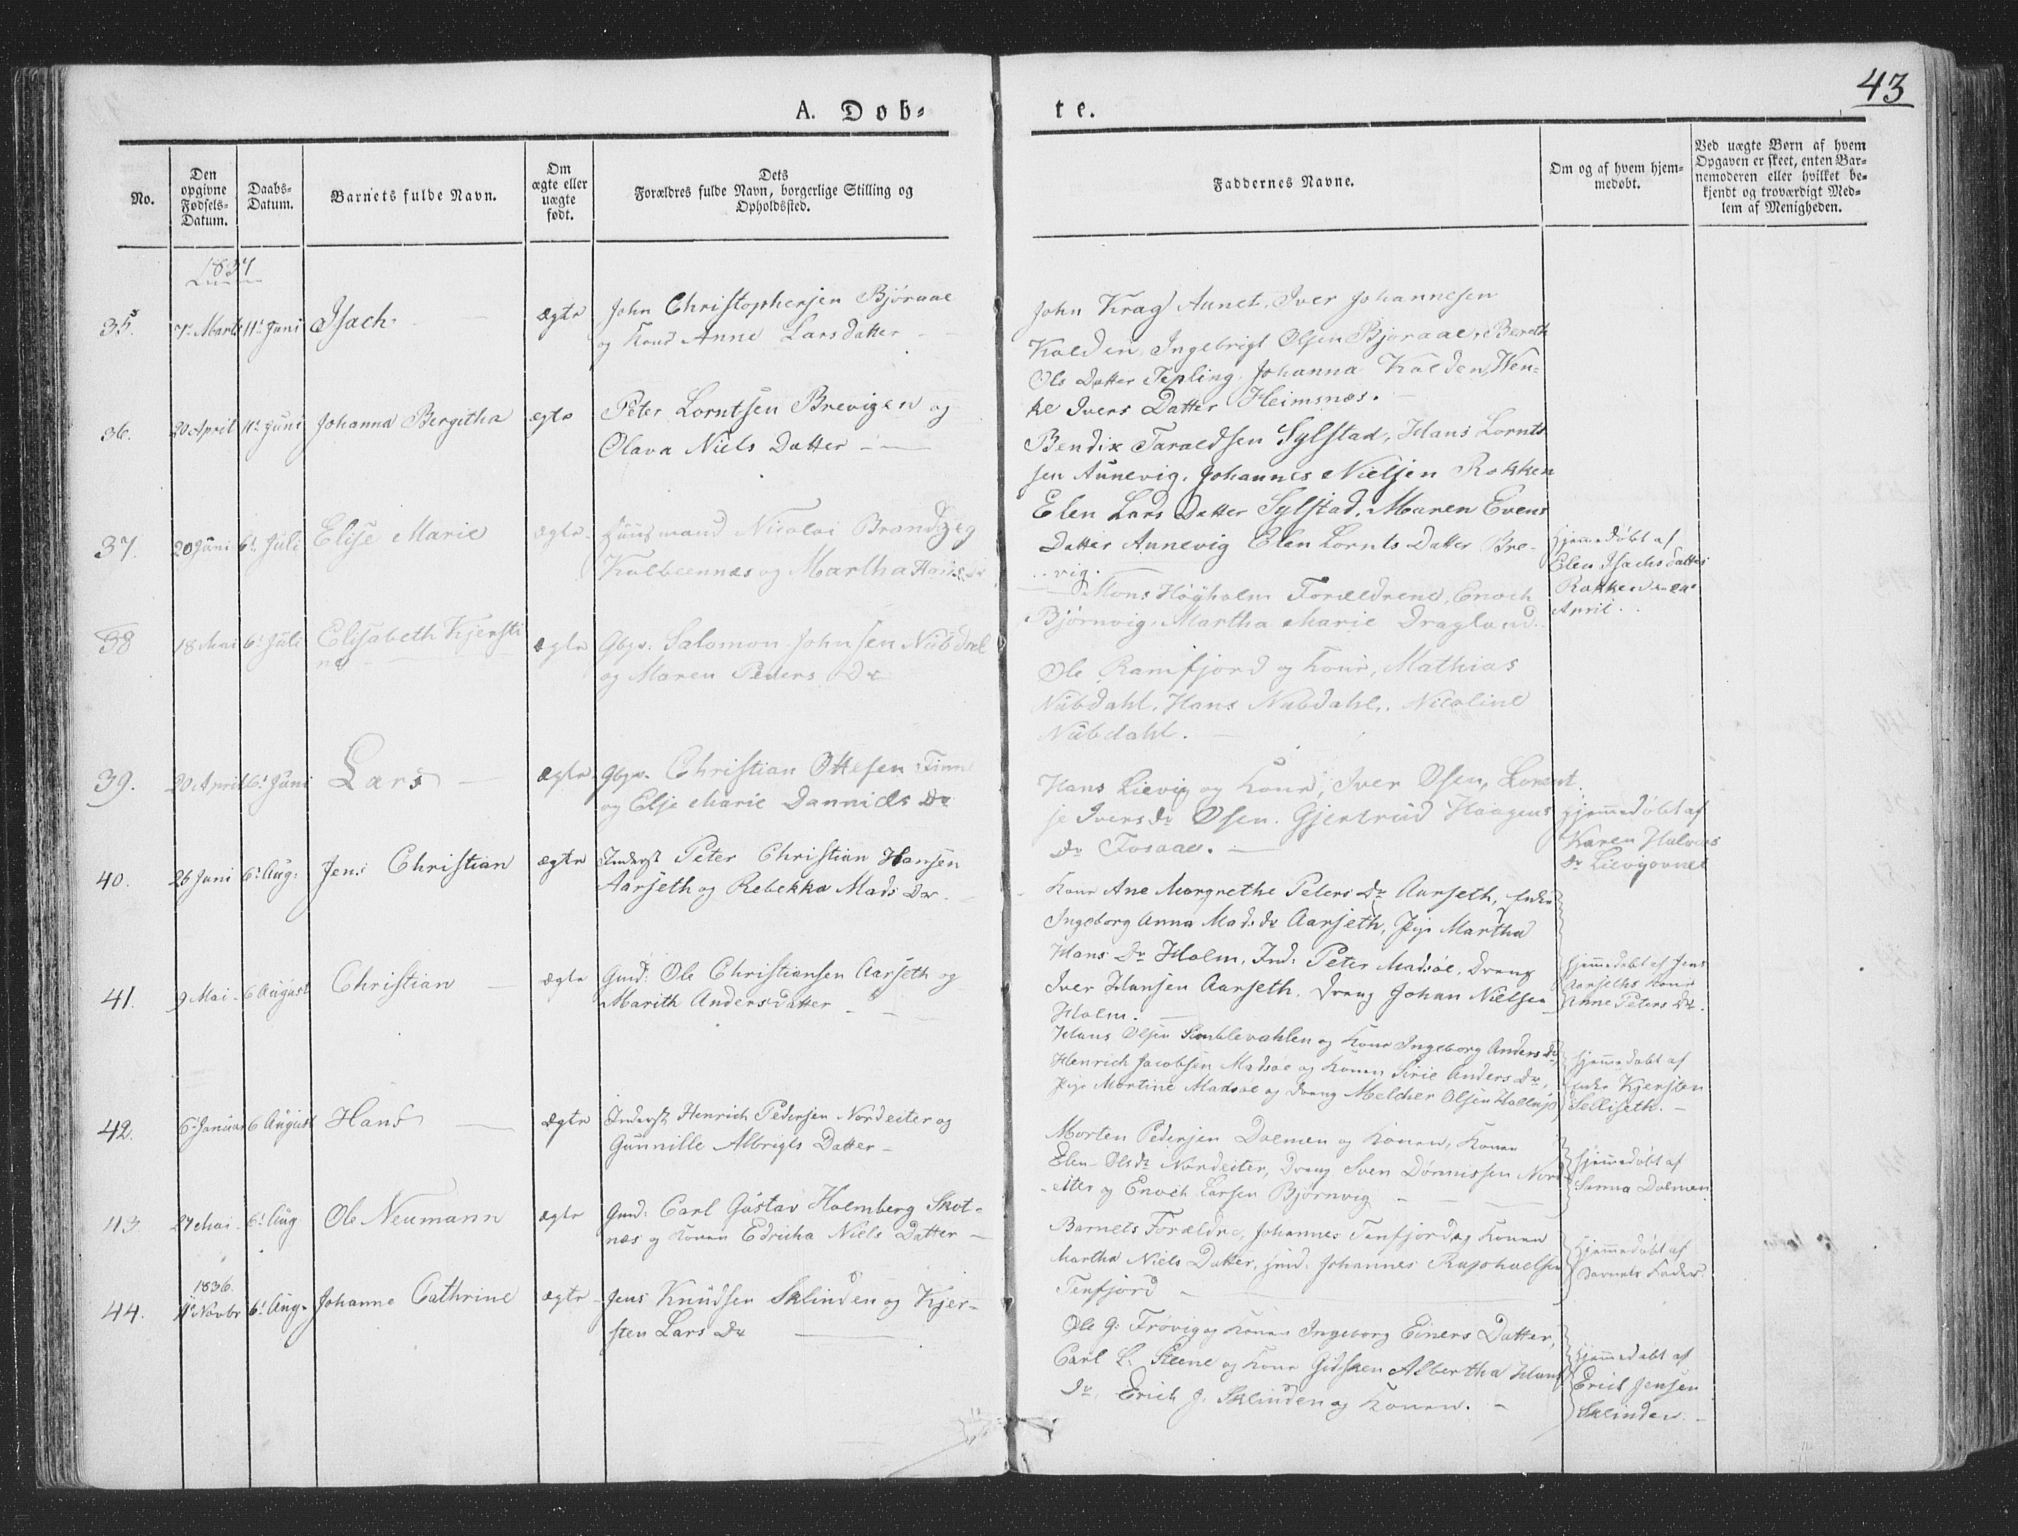 43
A. Dob-
te.
No.
Den
opgivne
Fødsels-
Datum.
Daabs-
Datum.
Barnets fulde Navn.
Om
ægte eller
uægte
født.
Dets
Forældres fulde Navn, borgerlige Stilling og
Opholdssted.
Faddernes Navne.
Om og af hvem hjem-
medøbt.
Ved uægte Børn af hvem
Opgaven er skeet, enten Bar-
nemoderen eller hvilket be-
kjendt og troværdigt Med-
lem af Menigheden.
1837
35. 7de Marts 11te Juni Isach. ægte John Christophersen Bjøraae
og Kone Anne Larsdatter
John Krag Aunet, Iver Johannesen
Kalden, Ingebrigt Olsen Bjøraae, Bereth
Ols Datter Tepling, Johanna Kalden, Wen-
ke Ivers Datter Heimsnæs.
36. 20 April 11te Juni Johanna Bergitha ægte Peter Lorntsen Brevigen og
Olava Niels Datter
Bendix Taraldsen Sylstad, Hans Lornt-
sen Aunevig, Johannes Nielsen Rokken
Elen Lars Datter Sylstad, Maren Evens
Datter Aunevig Elen Lornts Datter Bre-
vig.
Hjemmedøbt af
Elen Isachs datter
Rokken
April.
37. 20 Juni 6te Juli Elise Marie ægte Huusmand Nicolai Brandzeg
Kalbeennæs og Martha Hans Dr
Mons Høyholm Forældrene, Enoch
Bjørnvig, Martha Marie Dragland.
38 18 Mai 6te Juli Elisabeth Kjersti
na ægte Gbgr. Salomon Johnsen Nübdal
og Maren Peders Dr
Ole Ramfjord og Kone, Mathias
Nübdahl, Hans Nübdahl, Nicoline
Nübdahl.
39. 20 April 6te Juni Lars ægte Gbgr. Christian Ottesen Finn
og Else Marie Danniels Dr
Hans Lievig og Kone, Iver Osen, Lorent
se Iversdr Osen. Gjertrud Haagens
Dr Fosaae.
Hjemmedøbt af
Karen Halvors
Dr Lievigovnet
40. 26 Juni 6te Aug: Jens Christian ægte Inderst Peter Christian Hansen
Aarseth og Rebekka Mads Dr.
Kone Ane Margrethe Peters Dr Aarseth, Enke
Ingeborg Anna Mads dr Aarseth, Pige Martha
Hans Dr Holm, Ind: Peter Madsøe, Dreng
Iver Hansen Aarseth, Dreng Johan Nielsen
Holm.
Hjemmedøbt af Jens
Aarseths Kone
Anne Peters Dr.
41. 9 Mai 6 August Christian ægte Gmd: Ole Christiansen Aarseth og
Marith Andersdatter
Hans Olsen og Kone Ingeborg Anders Dr,
Henrich Jacobsen Madsøe og Konen Sirie Anders Dr,
Pige Martine Madsøe og Dreng Melcher Olsen
Hjemmedøbt af
Enke Kjersten
Selliseth.
42. 6te Januar 6 August Hans ægte Inderst Henrich Pedersen Nordeiter og
Gunnille Albrigts Datter
Morten Pedersen Dolmen og Konen, Konen
Elen Olsdr Nordeiter, Dreng Sven Dønnissen Nord
eiter og Enoch Larsen Bjørnvig
Hjemmedøbt af
Sinna Dolmen.
43. 27 Mai 6te Aug Ole Neumann ægte Gmd: Carl Gustav Holmberg Skot-
næs og Konen Edricha Niels Datter
Barnets Forældre, Johannes Tenfjord og Konen
Martha Niels Datter, gmd: Johannes Raphaelsen
Tenfjord
Hjemmedøbt af
Barnets Fader.
1836.
44. 11te Novbr 6te Aug. Johanne Cathrine ægte Jens Knudsen Sklinden og Kjer-
sten Lars Dr
Ole G: Frøvig og Konen Ingeborg Einers Datter,
Carl L: Steene og Kone Gidsken Albertha Hans
Dr, Erich J: Sklinden og Konen.
Hjemmedøbt af
Erich Jensen
Sklinden.